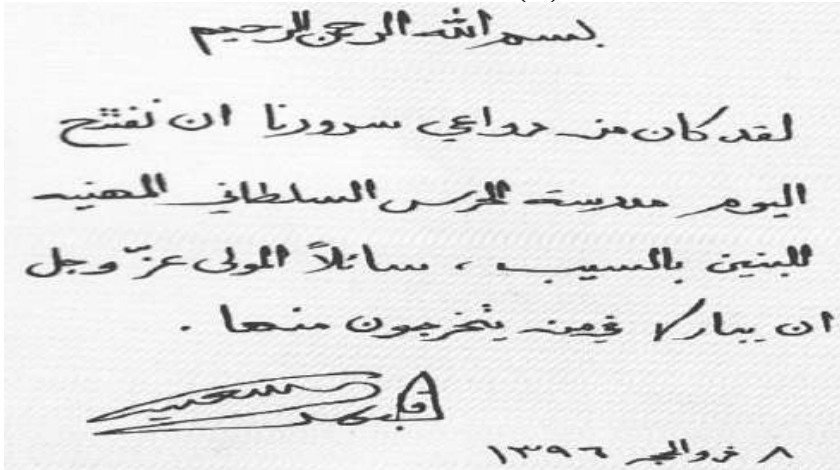 بسم الله الرحمن الرحيم
لقد كان من دواعي سرورنا ان نفتتح
اليوم مدرسة الحرس السلطاني المهنيه
للبنين بالسيب ، سائلاً المولى عزّ وجل
ان يبارك فيمن يتخرجون منها .
قابوس بن سعيد
٨ ذو الحجر ١٣٩٦